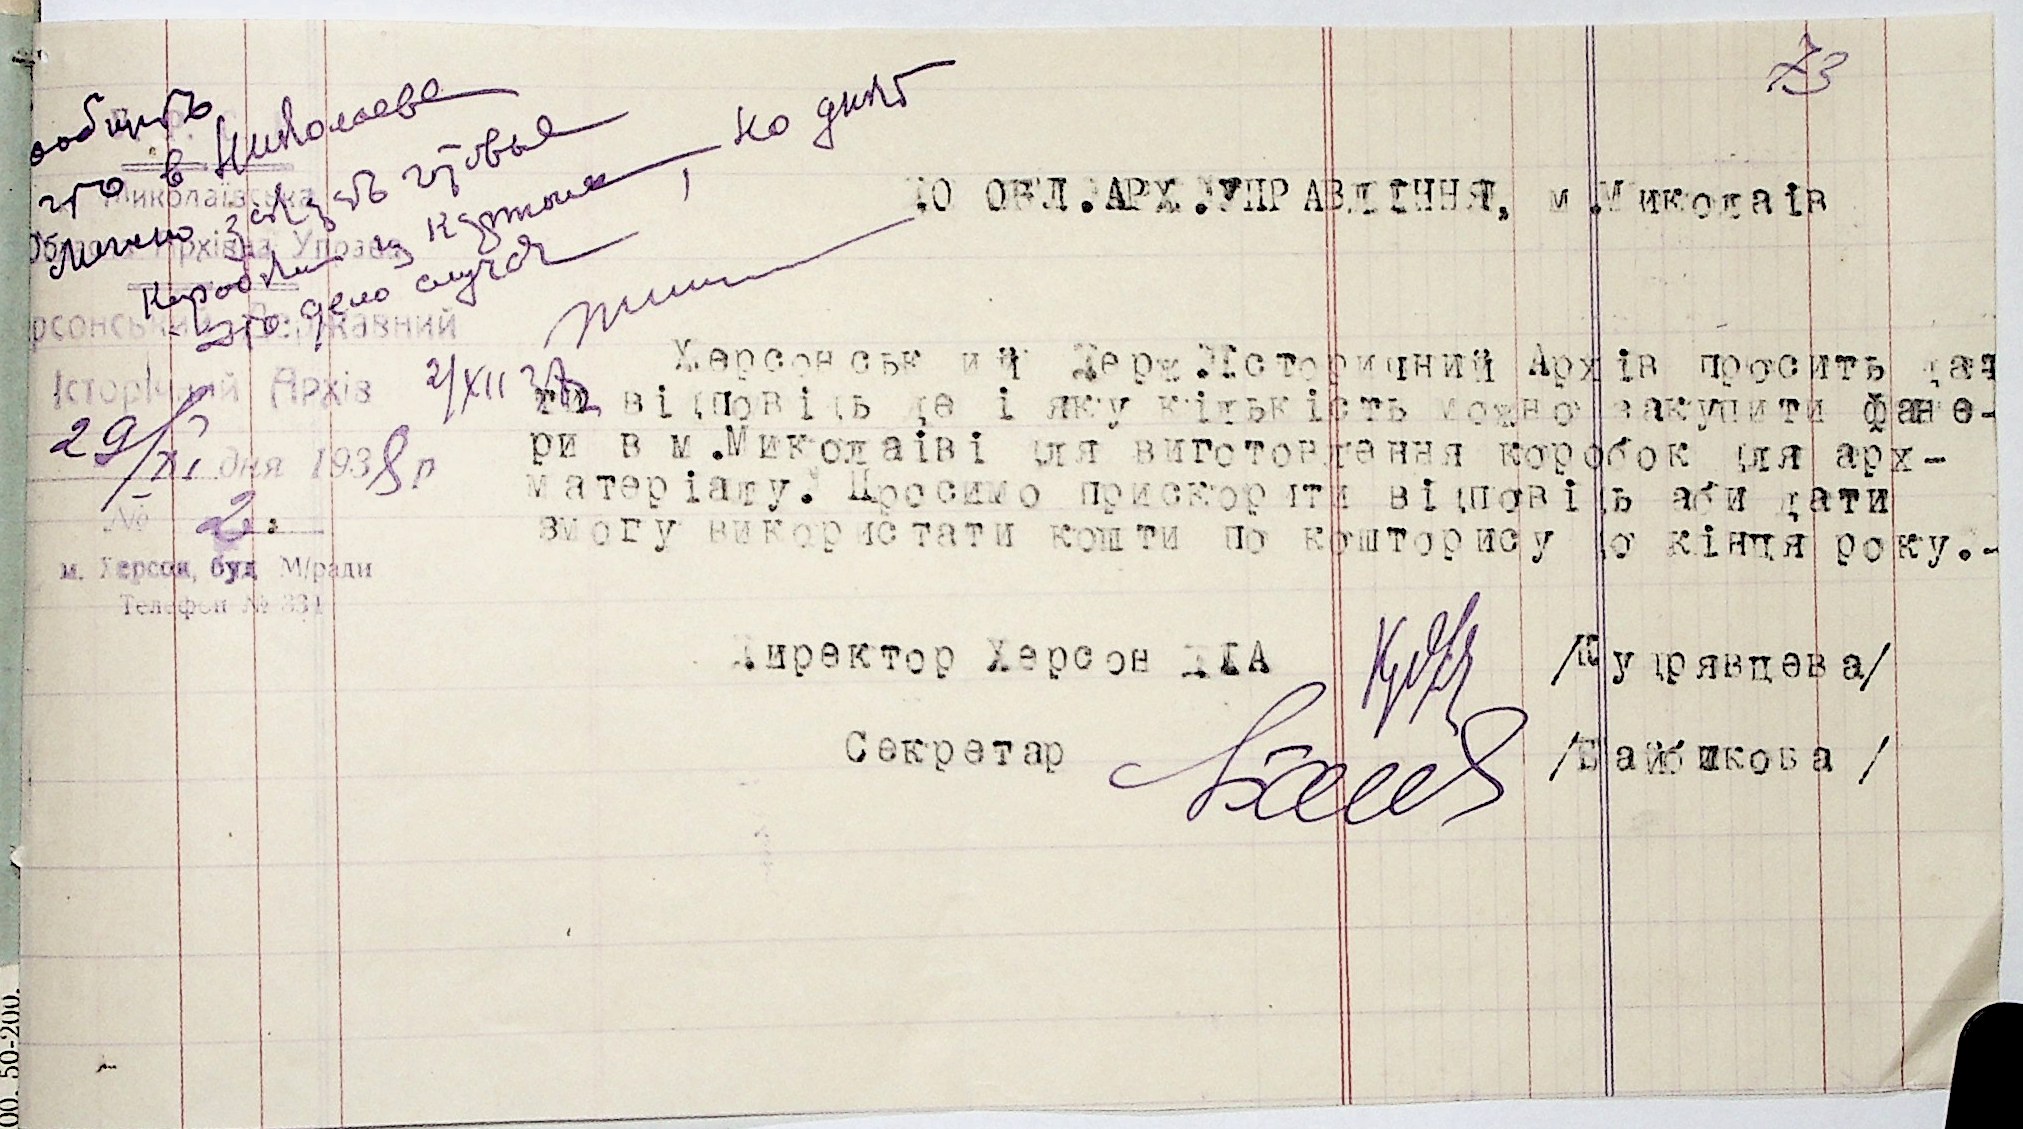 73
сообщить
что в Николаеве
можно заказать готовые
коробки из картона, но
это дело случая
2/XII 38
У.С.Р.Р.
Миколаївська
Обласна Архівна Управа
Херсонський Державний
Історічний Архів
29/XI дня 1938 р
№ 2.
м. Херсон, буд. М/ради
Телефон № 331
ДО ОБЛ.АРХ.УПРАВЛІННЯ, м.Миколаів
Херсонськ ий Держ.Історичний Архів просить дач
ти відповідь де і яку кількість можно закупити фане-
ри в м.Миколаіві для виготовлення коробок для арх-
матеріалу. Просимо прискорити відповідь аби дати
змогу використати кошти по кошторису до кінця року.-
Директор Херсон ДІА /Кудрявцева/
Секретар /Байбикова /
00. 50-200.